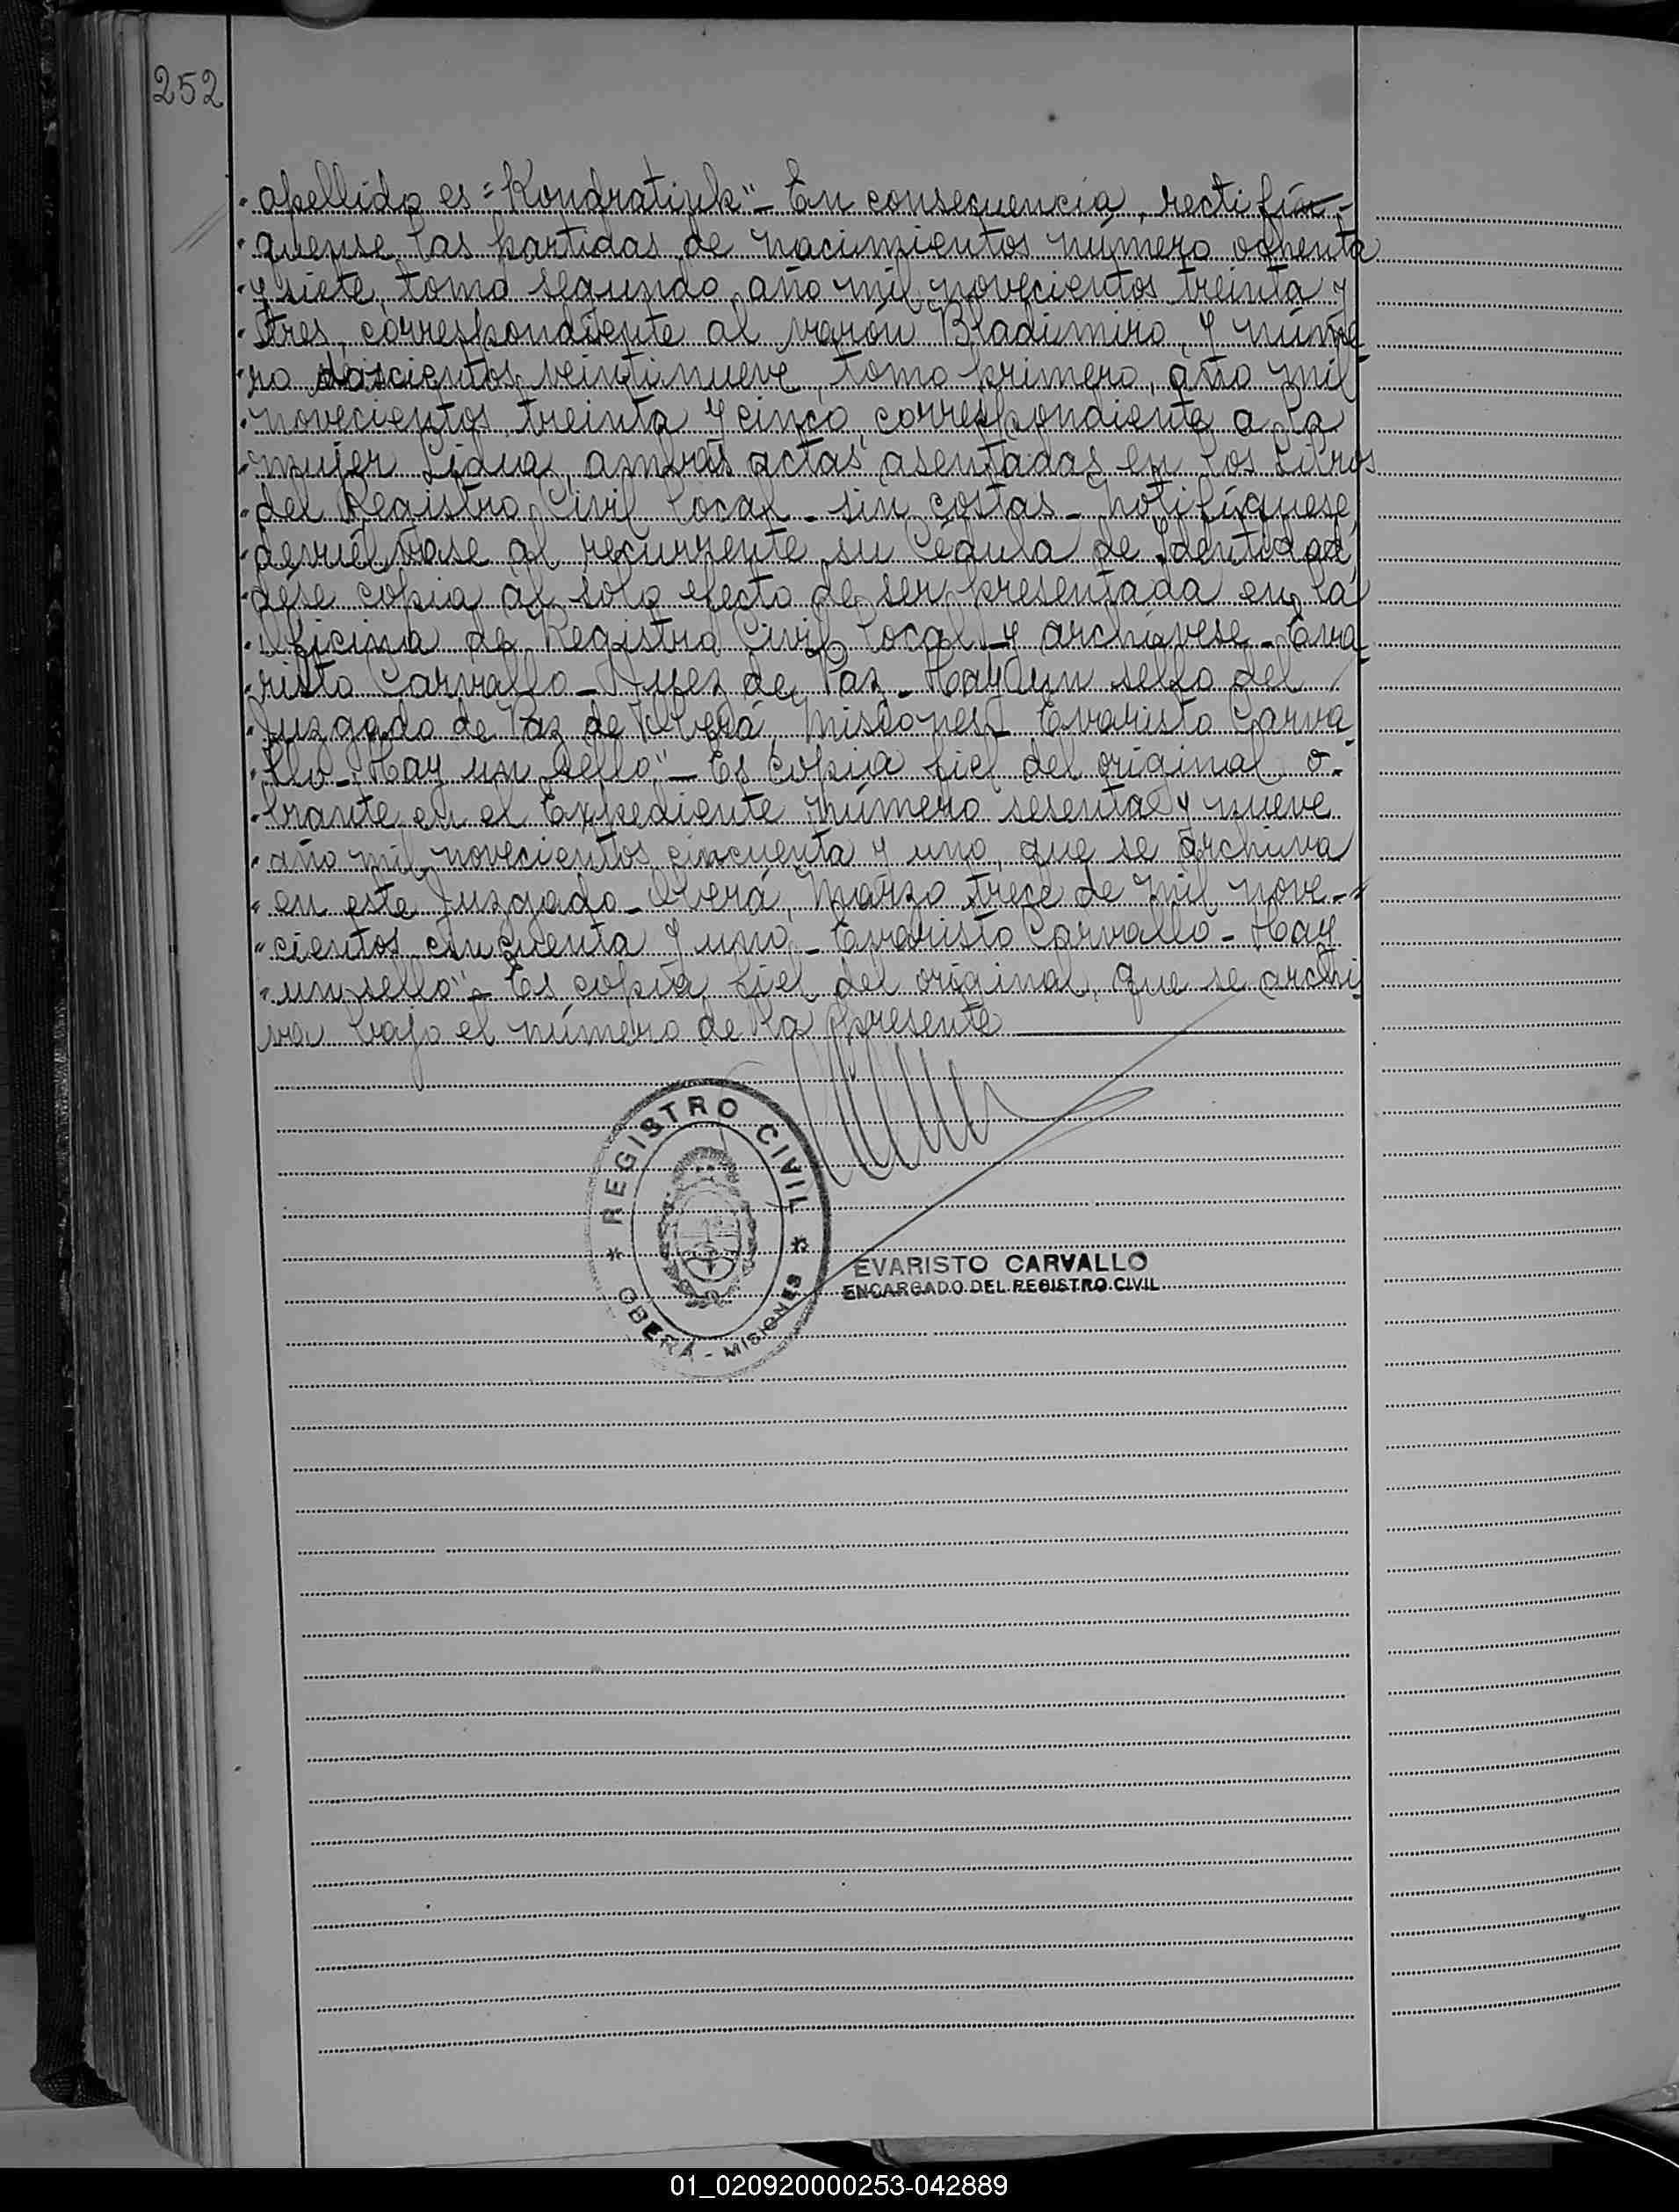 252
"apellido es "Kondratiuk"- En consecuencia, rectifí-
"quense las partidas de nacimientos número ochenta
"y siete, tomo segundo, año mil novecientos treinta y
"tres, correspondiente al varón Bladimiro, y núme
"ro doscientos veintinueve, tomo primero, año mil
"novecientos treinta y cinco, correspondiente a la
"mujer Lidia, ambas actas asentadas en los Libros
"del Registro Civil local - sin costas - Notifíquese,
"devuélvase al recurrente su Cédula de Identidad,
"dése copia al solo efecto de ser presentada en la
"Oficina de Registro Civil local y archívese - Eva
"risto Carvallo - Juez de Paz - Hay un sello del
"Juzgado de Paz de Oberá, Misiones - Evaristo Carva
"llo - Hay un sello" - Es copia fiel del original o-
"brante en el Expediente número sesenta y nueve
"año mil novecientos cincuenta y uno, que se archiva
"en este Juzgado - Oberá, Marzo trece de mil nove-
"cientos cincuenta y uno - Evaristo Carvallo - Hay
"un sello" - Es copia fiel del original, que se archi
va bajo el número de la presente
REGISTRO CIVIL
OBERÁ - MISIONES
EVARISTO CARVALLO
ENCARGADO DEL REGISTRO CIVIL
01_020920000253-042889